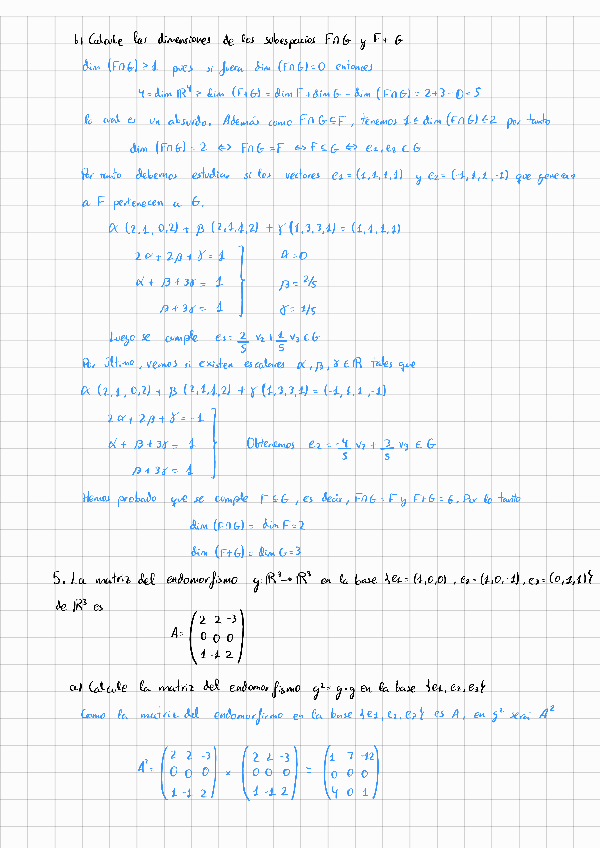 b) Calcule las dimensiones de los subespacios F∩G y F+G
dim (F∩G) ≥ 1 pues si fuera dim (F∩G)=0 entonces
4 = dim ℝ⁴ ≥ dim (F+G) = dim F + dim G - dim (F∩G) = 2+3-0=5
lo cual es un absurdo. Además como F∩G⊆F, tenemos 1 ≤ dim (F∩G) ≤ 2 por tanto
dim (F∩G) = 2 ⇔ F∩G = F ⇔ F⊆G ⇔ e1, e2 ⊂ G
Por tanto debemos estudiar si los vectores e1 = (1,1,1,1) y e2 = (-1,1,1,-1) que generan
a F pertenecen a G.
α (2,1,0,2) + β (2,1,1,2) + γ (1,3,3,1) = (1,1,1,1)
2α + 2β + γ = 1 α=0
α + β + 3γ = 1 β = 2/5
β + 3γ = 1 γ = 1/5
Luego se cumple e1 = 2/5 v2 + 1/5 v3 ⊂ G
Por último, vemos si existen escalares α, β, γ ∈ ℝ tales que
α (2,1,0,2) + β (2,1,1,2) + γ (1,3,3,1) = (-1,1,1,-1)
2α + 2β + γ = -1
α + β + 3γ = 1 Obtenemos e2 = -4/5 v2 + 3/5 v3 ∈ G
β + 3γ = 1
Hemos probado que se cumple F⊆G, es decir, F∩G = F y F+G = G. Por lo tanto
dim (F∩G) = dim F = 2
dim (F+G) = dim G = 3
5. La matriz del endomorfismo g: ℝ³→ℝ³ en la base {e1 = (1,0,0), e2 = (1,0,-1), e3 = (0,1,1)}
de ℝ³ es
A = (2 2 -3
0 0 0
1 -1 2)
a) Calcule la matriz del endomorfismo g² = g∘g en la base {e1, e2, e3}
Como la matriz del endomorfismo en la base {e1, e2, e3} es A, en g² será A²
A² = (2 2 -3 × (2 2 -3 = (1 7 -12
0 0 0 0 0 0 0 0 0
1 -1 2) 1 -1 2) 4 0 1)